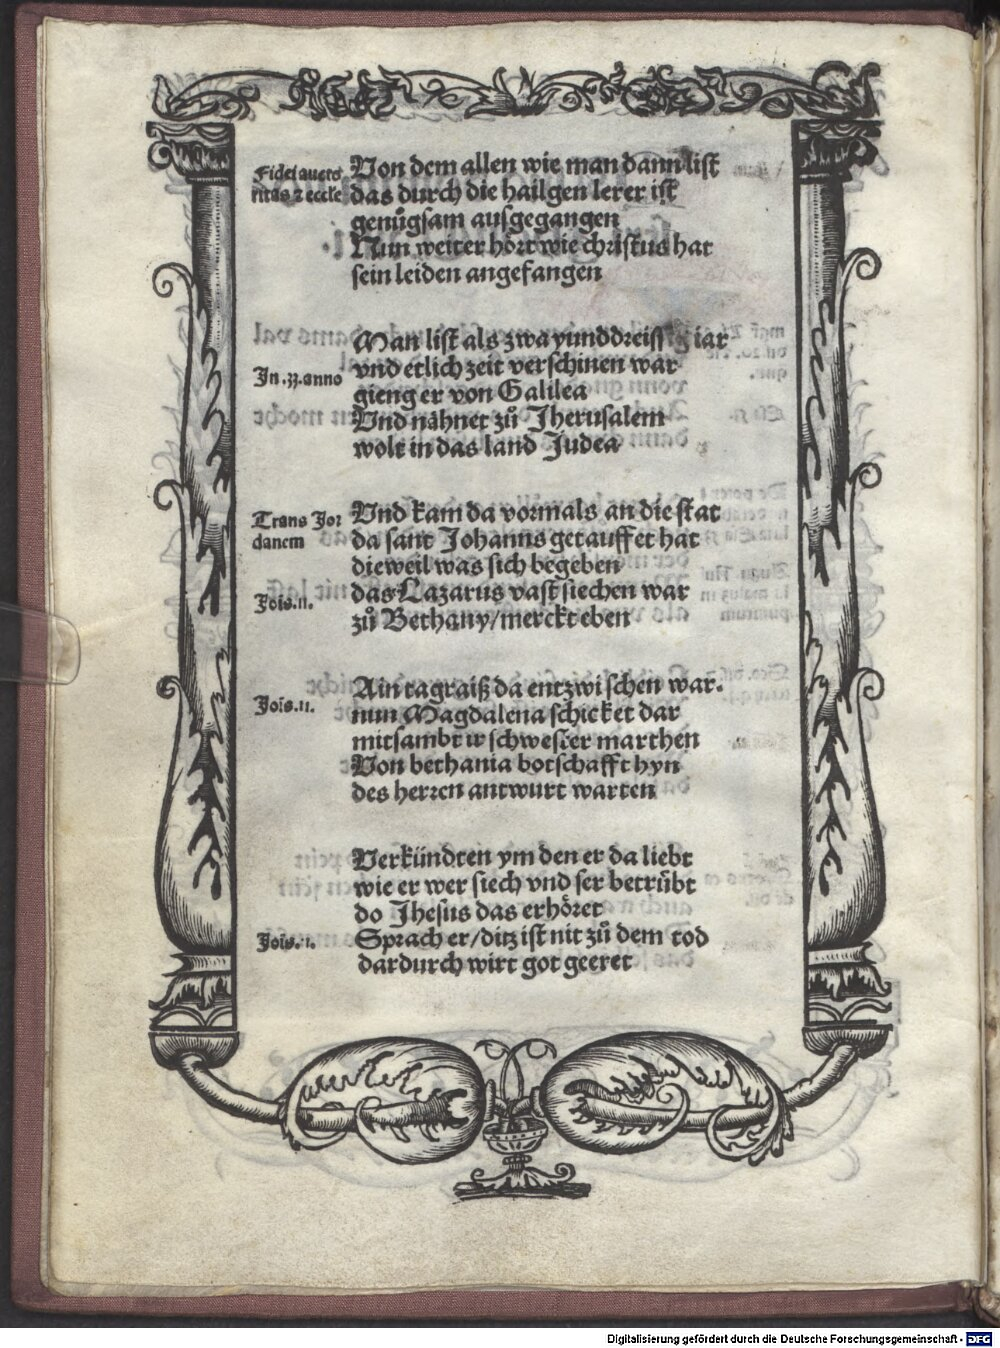 Von dem allen wie man dann list
das durch die hailgen lerer ist
genůgsam ausgegangen
Nun weiter hört wie christus hat
sein leiden angefangen
In .33. anno
Man list als zwayunddreissig iar
vnd etlich zeit verschinen war
gieng er von Galilea
Vnd nähnet zů Jherusalem
wolt in das land Judea
Trans Jor
danem
Jois. 11.
Vnd kam da vormals an die stat
da sant Johanns getauffet hat
dieweil was sich begeben
das Lazarus vast siechen war
zů Bethany/merckt eben
Jois. 11.
Ain tagraiß da entzwischen war.
nun Magdalena schicket dar
mitsambt ir schwester marthen
Von bethania botschafft hyn
des herren antwurt warten
Verkündten ym den er da liebt
wie er wer siech vnd ser betrübt
do Jhesus das erhöret
Sprach er/ditz ist nit zů dem tod
dardurch wirt got geeret
Digitalisierung gefördert durch die Deutsche Forschungsgemeinschaft - DFG